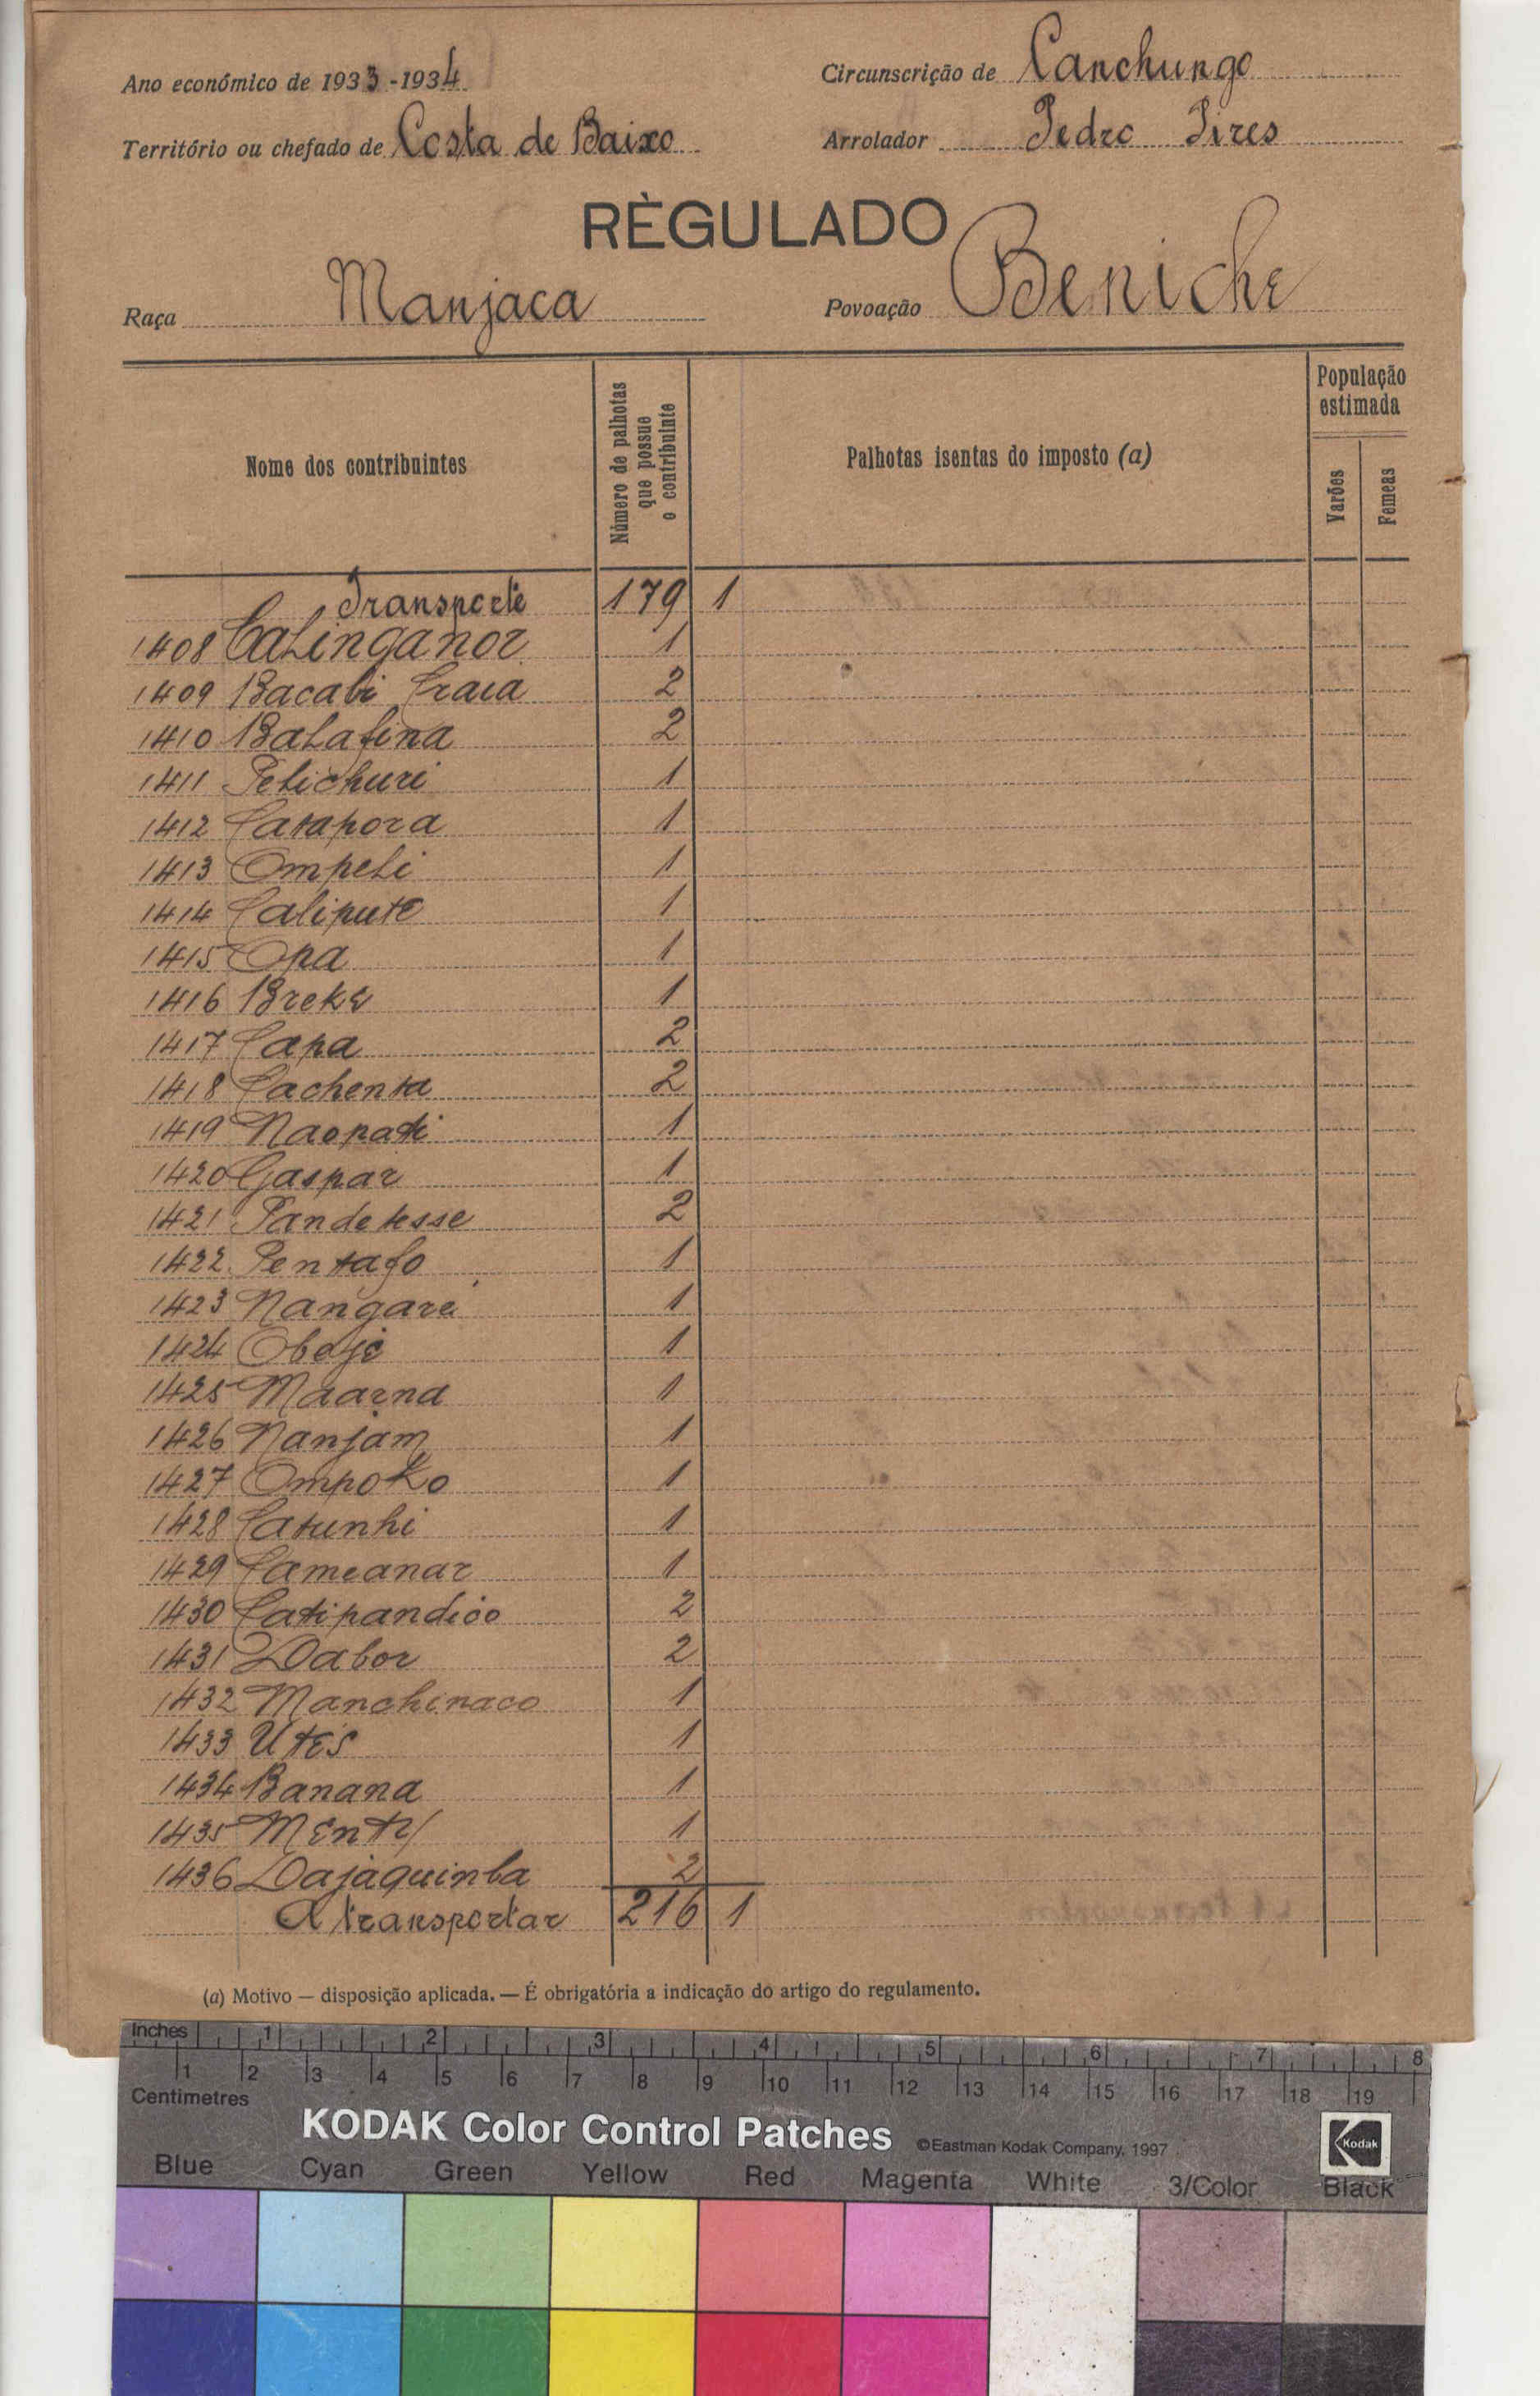 Ano económico de 1933-1934
Circunscrição de Canchungo
Território ou chefado de Costa de Baixo
Arrolador Pedro Pires
RÈGULADO
Raça Manjaca
Povoação Beniche
Nome dos contribuintes
Número de palhotas que possue o contribuinte
Palhotas isentas do imposto (a)
População estimada
Varões
Femeas
Transporte 179 1
1408 Calinganor 1
1409 Bacabi Craia 2
1410 Balafina 2
1411 Pelichuri 1
1412 Catapora 1
1413 Ompeli 1
1414 Calipute 1
1415 Opa 1
1416 Breke 1
1417 Capa 2
1418 Cachenta 2
1419 Naopati 1
1420 Gaspar 1
1421 Pandetesse 2
1422 Pentafo 1
1423 Nangaré 1
1424 Oboje 1
1425 Maarna 1
1426 Nanjam 1
1427 Ompoko 1
1428 Catunhi 1
1429 Cameanar 1
1430 Catipandico 2
1431 Dabor 2
1432 Manchinaco 1
1433 Utés 1
1434 Banana 1
1435 Mentr 1
1436 Dajaquinba 2
A transportar 216 1
(a) Motivo — disposição aplicada. — É obrigatória a indicação do artigo do regulamento.
Inches 1 2 3 4 5 6 7 8
1 2 3 4 5 6 7 8 9 10 11 12 13 14 15 16 17 18 19
Centimetres
KODAK Color Control Patches ©Eastman Kodak Company, 1997 Kodak
Blue Cyan Green Yellow Red Magenta White 3/Color Black